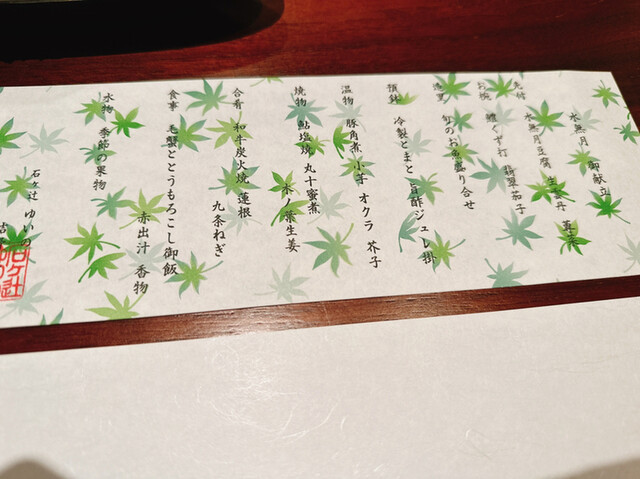 水無月 御献立
先付 水無月豆腐 生雲丹
お椀 鱧くず打 翡翠茄子
造里 旬のお魚盛り合せ
預鉢 冷製とまと 旨酢ジュレ掛
温物 豚角煮 小芋 オクラ 芥子
焼物 鮎塩焼 丸十蜜煮
木ノ葉生姜
合肴 和牛炭火焼 蓮根
九条ねぎ
食事 毛蟹ととうもろこし御飯
赤出汁 香物
水物 季節の果物
石ヶ辻 ゆいの